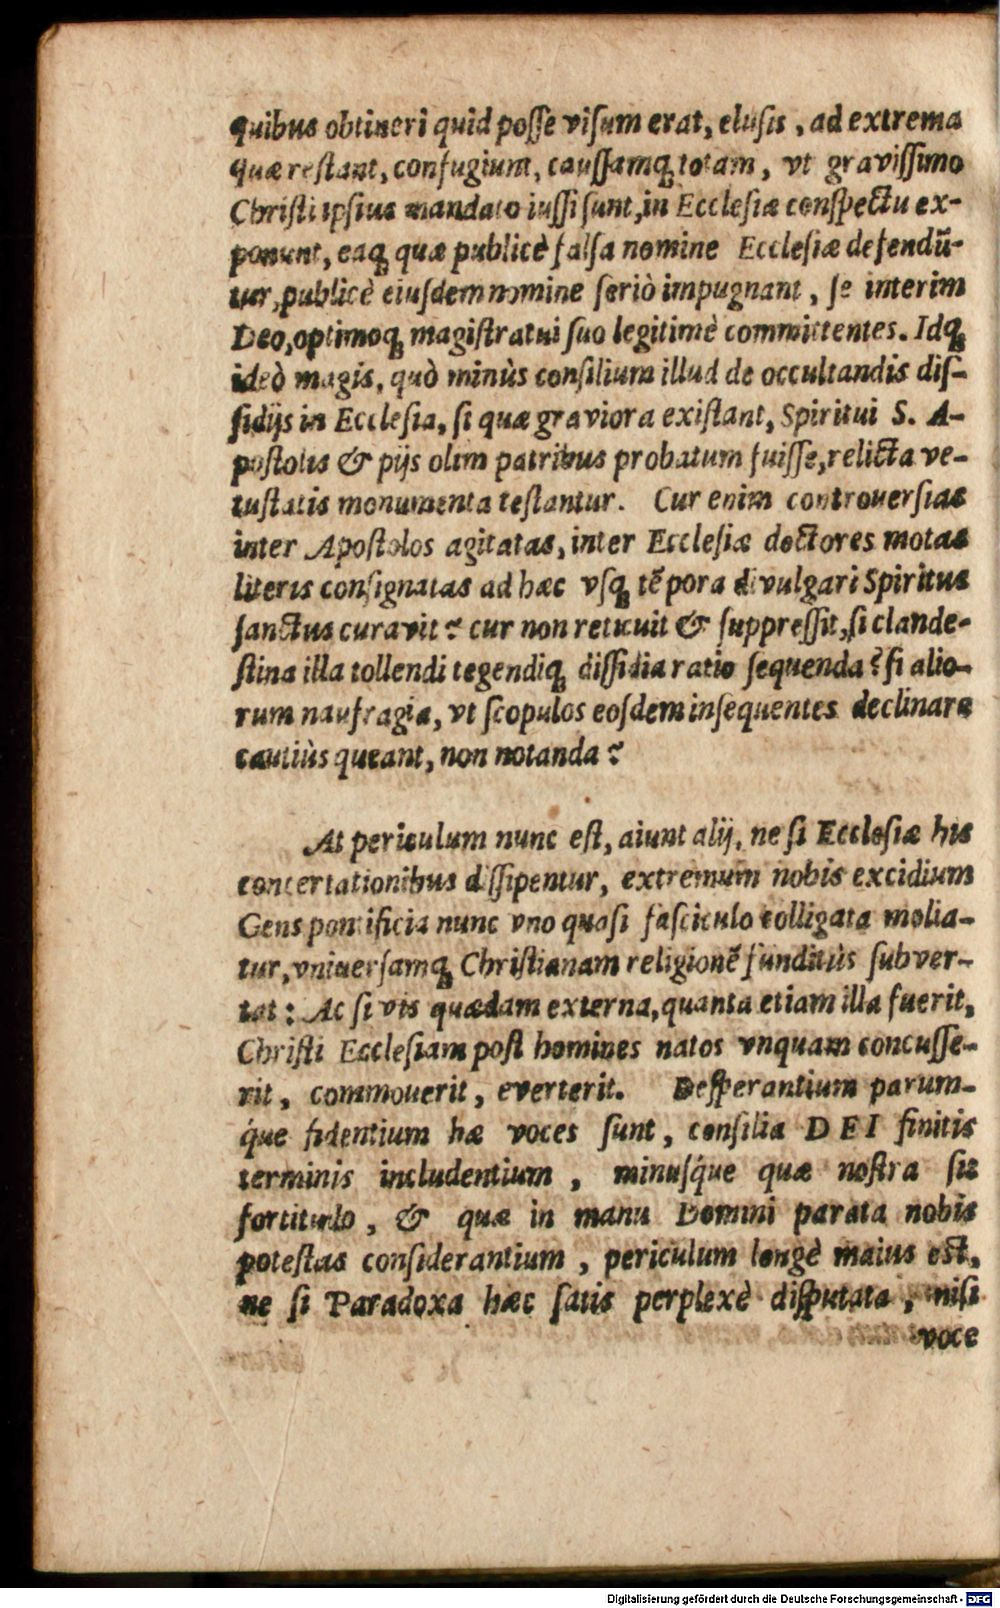 quibus obtineri quid poſſe viſum erat, eluſis, ad extrema
quæ reſtant, confugiunt, cauſſamq́ totam, vt graviſſimo
Chriſti ipſius mandato iuſſi ſunt, in Eccleſiæ conſpectu ex-
ponunt, eaq́ quæ publicè falſa nomine Eccleſiæ defendū-
tur, publicè eiuſdem nomine ſeriò impugnant, ſe interim
Deo, optimoq́ magiſtratui ſuo legitimè committentes. Idq́
ideò magis, quò minùs conſilium illud de occultandis diſ-
ſidijs in Eccleſia, ſi quæ graviora exiſtant, Spiritui S. A-
poſtolis & pijs olim patribus probatum fuiſſe, relicta ve-
tuſtatis monumenta teſtantur. Cur enim controuerſias
inter Apoſtolos agitatas, inter Eccleſiæ doctores motas
literis conſignatas ad hæc vſq́ tēpora divulgari Spiritus
ſanctus curavit? cur non reticuit & ſuppreſſit, ſi clande-
ſtina illa tollendi tegendiq́ diſſidia ratio ſequenda? ſi alio-
rum naufragia, vt ſcopulos eoſdem inſequentes declinare
cautiùs queant, non notanda?
At periculum nunc eſt, aiunt alij, ne ſi Eccleſiæ his
concertationibus diſſipentur, extremum nobis excidium
Gens pontificia nunc vno quaſi faſciculo colligata molia-
tur, vniuerſamq́ Chriſtianam religionē funditùs ſubver-
tat: Ac ſi vis quædam externa, quanta etiam illa fuerit,
Chriſti Eccleſiam poſt homines natos vnquam concuſſe-
rit, commouerit, everterit. Deſperantium parum-
q́ue fidentium hæ voces ſunt, conſilia DEI finitis
terminis includentium, minuſq́ue quæ noſtra ſit
fortitudo, & quæ in manu Domini parata nobis
poteſtas conſiderantium, periculum longè maius eſt,
ne ſi Paradoxa hæc ſatis perplexè diſputata, niſi
voce
Digitalisierung gefördert durch die Deutsche Forschungsgemeinschaft - DFG